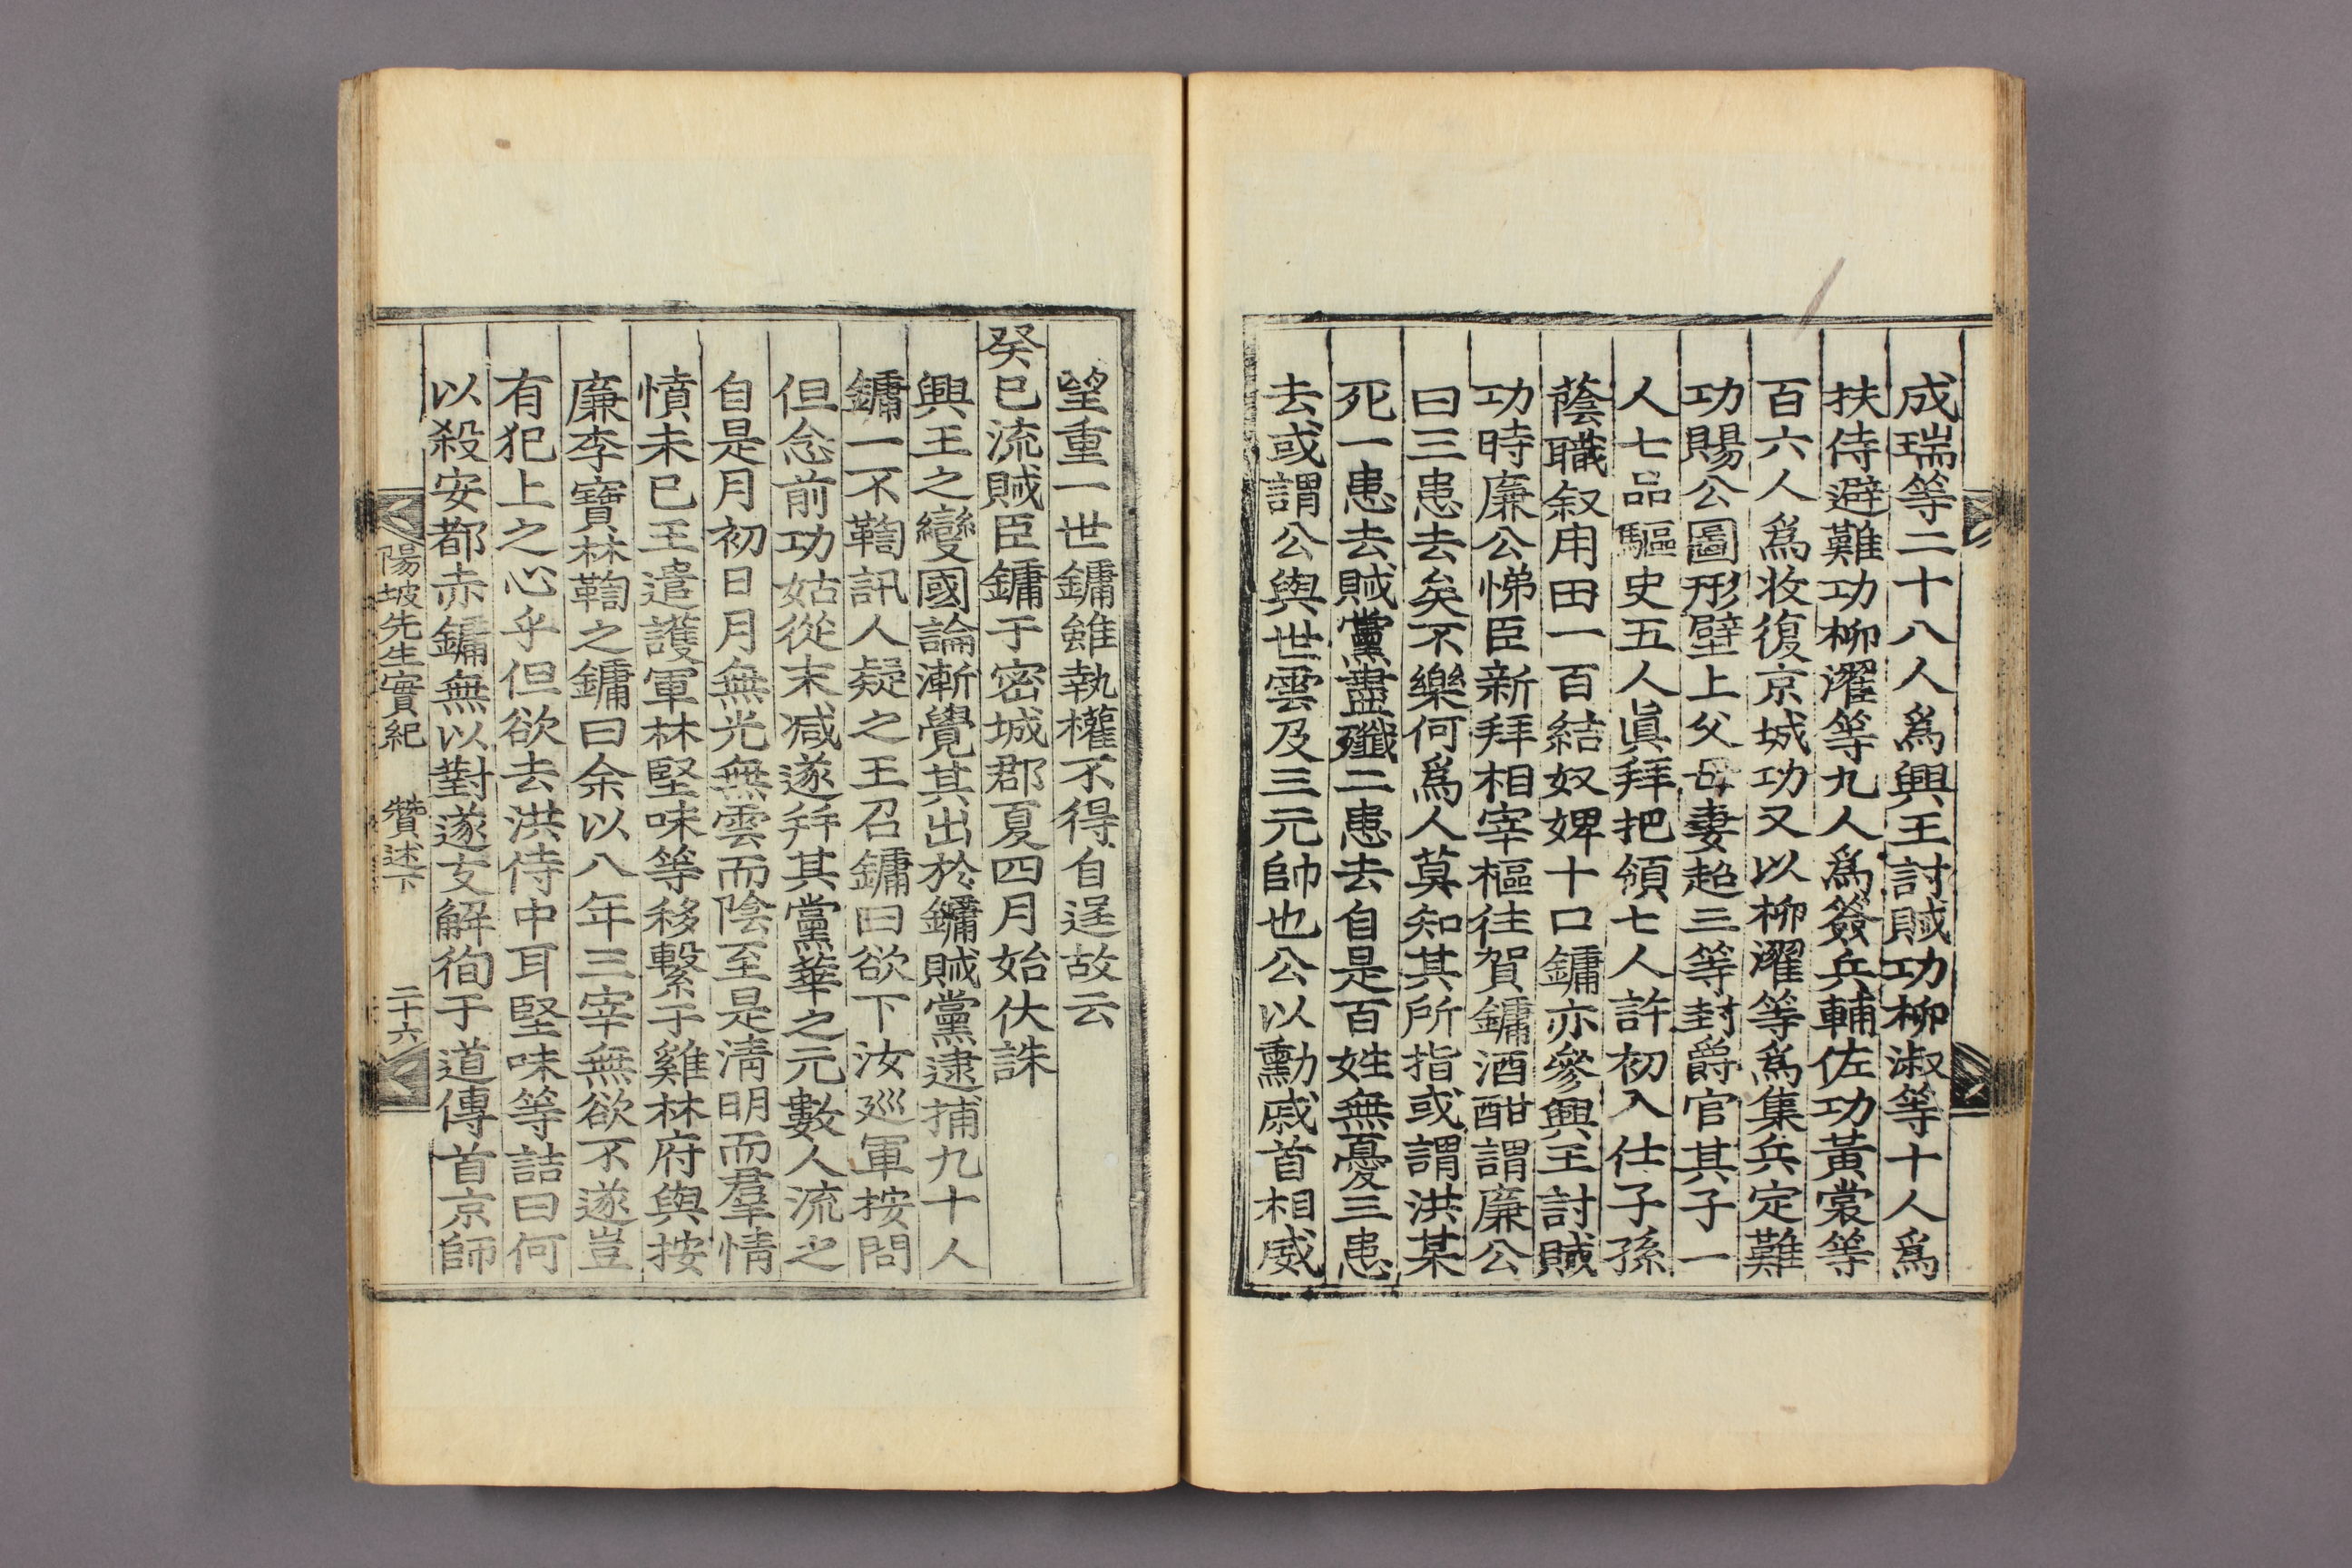 成瑞等二十八人爲興王討賊功柳淑等十人爲
扶侍避難功柳濯等九人爲簽兵輔佐功黃裳等
百六人爲收復京城功又以柳濯等爲集兵定難
功賜公圖形壁上父母妻超三等封爵官其子一
人七品驅史五人眞拜把領七人許初入仕子孫
蔭職叙用田一百結奴婢十口鏞亦參興王討賊
功時廉公悌臣新拜相宰樞往賀鏞酒酣謂廉公
曰三患去矣不樂何爲人莫知其所指或謂洪某
死一患去賊黨盡殲二患去自是百姓無憂三患
去或謂公與世雲及三元帥也公以勳戚首相威
望重一世鏞雖執權不得自逞故云
癸巳流賊臣鏞于密城郡夏四月始伏誅
興王之變國論漸覺其出於鏞賊黨逮捕九十人
鏞一不鞫訊人疑之王召鏞曰欲下汝巡軍按問
但念前功姑從末减遂拜其黨華之元數人流之
自是月初日月無光無雲而陰至是淸明而羣情
憤未已王遣護軍林堅味等移繫于雞林府與按
廉李寶林鞫之鏞曰余以八年三宰無欲不遂豈
有犯上之心乎但欲去洪侍中耳堅味等詰曰何
以殺安都赤鏞無以對遂支解徇于道傳首京師
陽坡先生實紀 贊述下 二十六